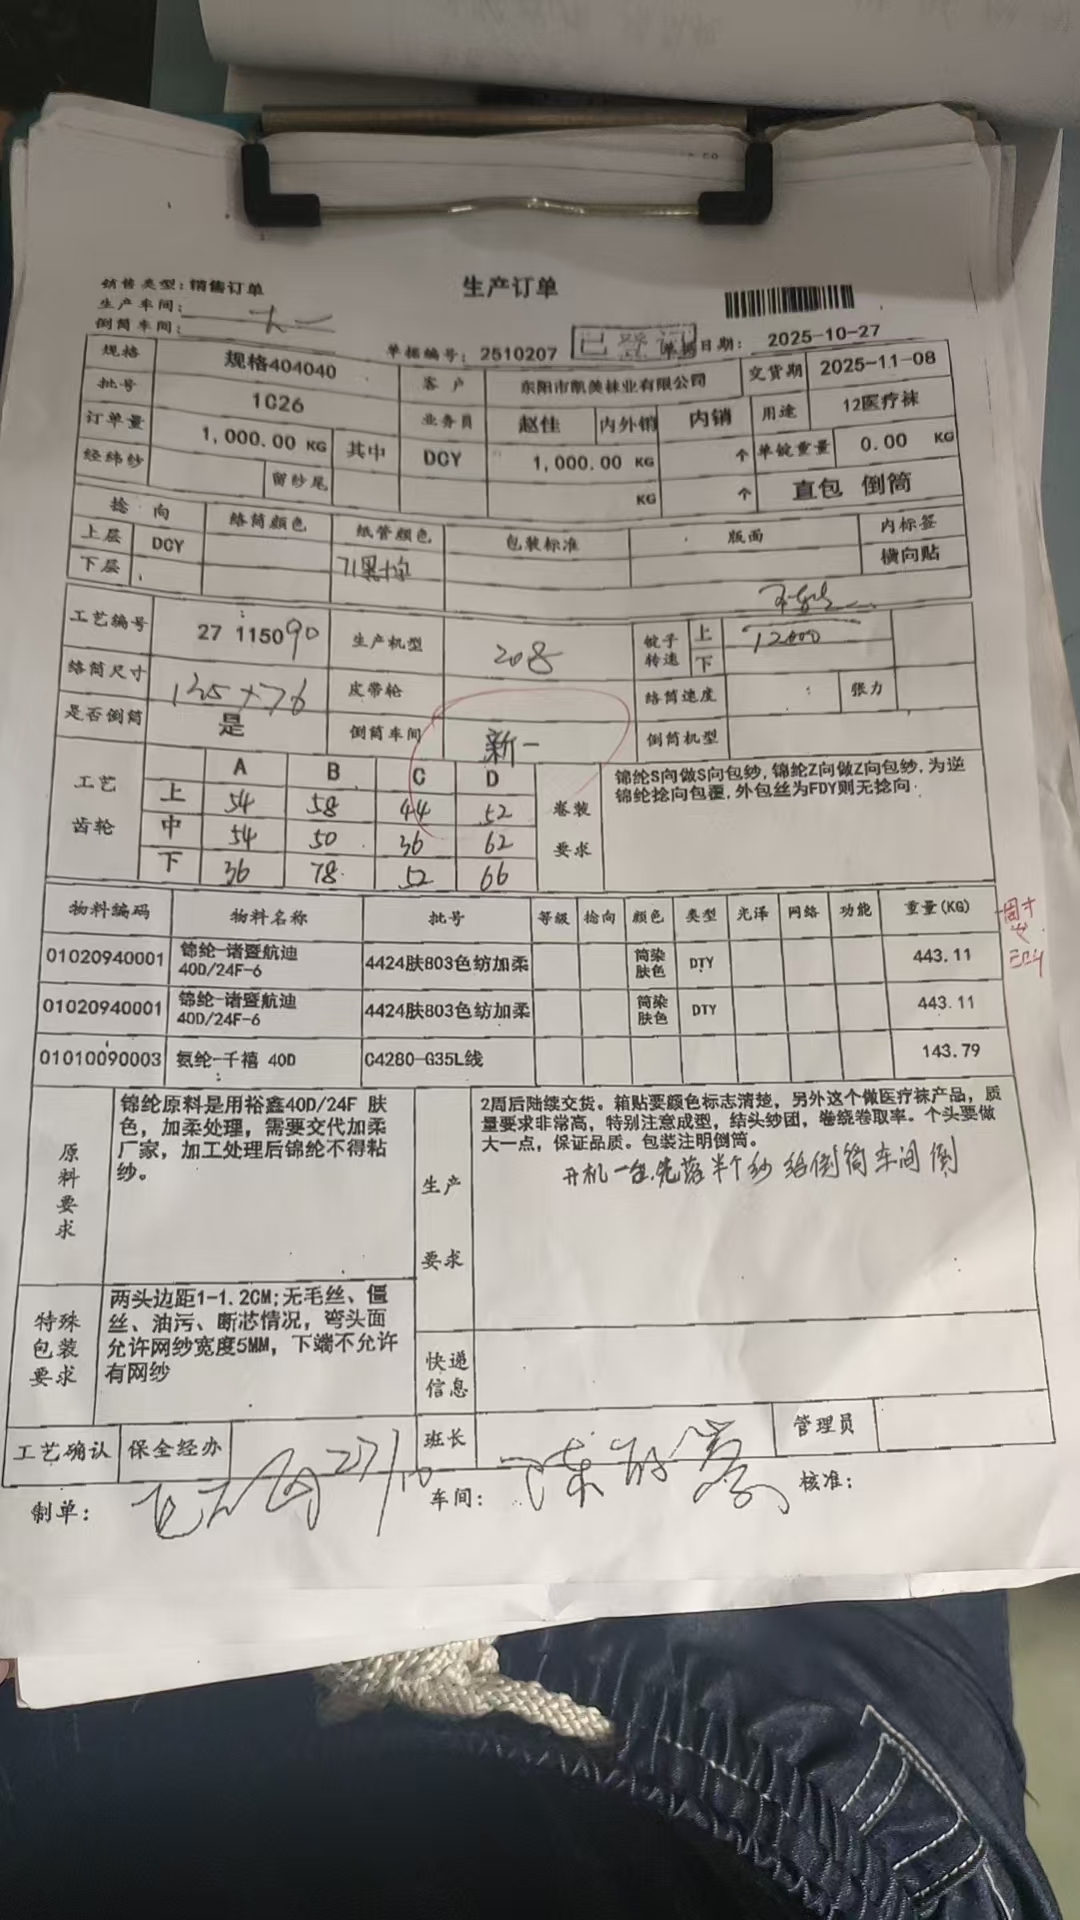 生产订单
销售类型：销售订单
生产车间：
倒筒车间：
单据编号：2510207 已登记 单据日期：2025-10-27
规格 规格404040 客户 东阳市凯美袜业有限公司 交货期 2025-11-08
批号 1C26 业务员 赵佳 内外销 内销 用途 12医疗袜
订单量 1,000.00 KG 其中 DCY 1,000.00 KG 个 单锭重量 0.00 KG
经纬纱 留纱尾 KG 个 直包 倒筒
捻向 络筒颜色 纸管颜色 包装标准 版面 内标签
上层 DCY 横向贴
下层
工艺编号 27 115090 生产机型 208 锭子转速 上 12000
下
络筒尺寸 135+76 皮带轮 络筒速度 张力
是否倒筒 是 倒筒车间 新一 倒筒机型
工艺齿轮 A B C D 卷装要求
上 54 58 44 52
中 54 50 36 62
下 36 78 52 66
锦纶S向做S向包纱,锦纶Z向做Z向包纱,为逆
锦纶捻向包覆,外包丝为FDY则无捻向
物料编码 物料名称 批号 等级 捻向 颜色 类型 光泽 网络 功能 重量(KG)
01020940001 锦纶-诸暨航迪 40D/24F-6 4424肤803色纺加柔 筒染肤色 DTY 443.11
01020940001 锦纶-诸暨航迪 40D/24F-6 4424肤803色纺加柔 筒染肤色 DTY 443.11
01010090003 氨纶-千禧 40D C4280-G35L线 143.79
原料要求
锦纶原料是用裕鑫40D/24F 肤
色，加柔处理，需要交代加柔
厂家，加工处理后锦纶不得粘
纱。
生产要求
2周后陆续交货。箱贴要颜色标志清楚，另外这个做医疗袜产品，质
量要求非常高，特别注意成型，结头纱团，卷绕卷取率。个头要做
大一点，保证品质。包装注明倒筒。
开机一台.先落半个纱 给倒筒车间倒
特殊包装要求
两头边距1-1.2CM;无毛丝、僵
丝、油污、断芯情况，弯头面
允许网纱宽度5MM，下端不允许
有网纱
快递信息
工艺确认 保全经办 班长 管理员
制单： 27/10 车间： 核准：